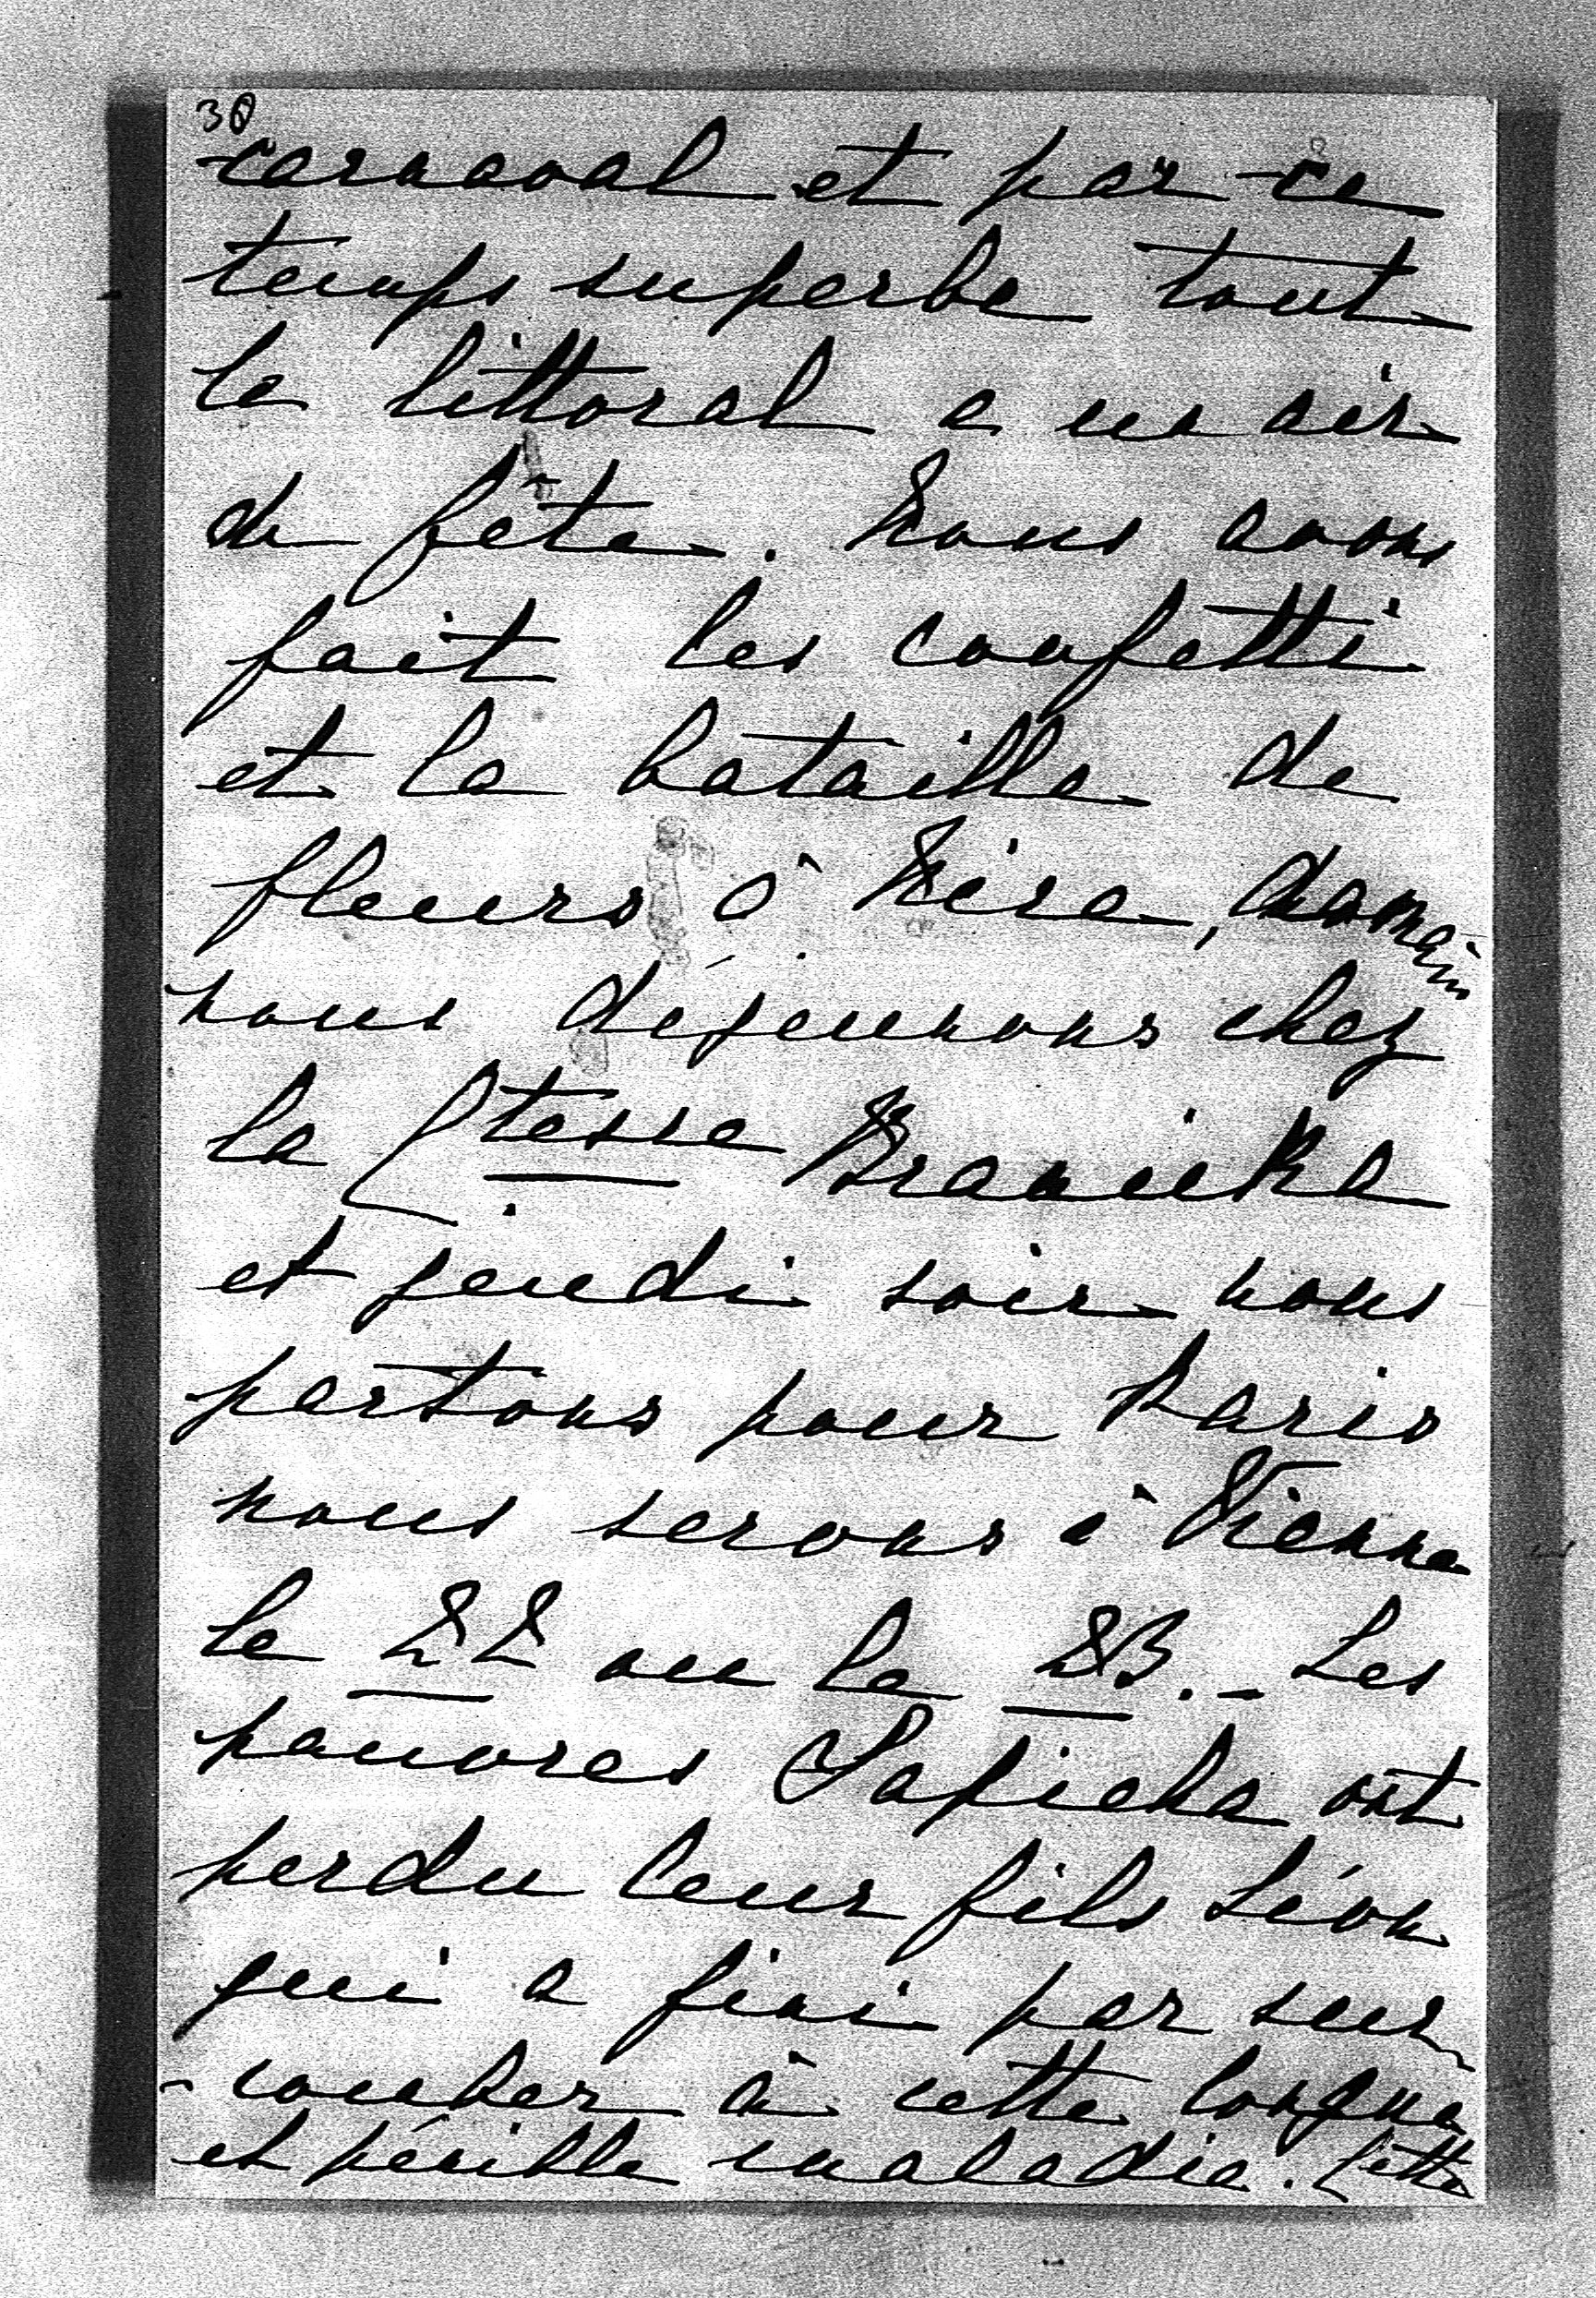 30
carnaval et par ce
temps superbe tout
le littoral a un air
de fête. Nous avons
fait les confetti
et la bataille de
fleurs à Nice, demain
nous déjeunons chez
la Ctesse Branicka
et jeudi soir nous
partons pour Paris
nous serons à Vienne
le 22 ou le 23. - Les
pauvres Sapieha ont
perdu leur fils Léon
qui a fini par suc
- comber à cette longue
et pénible maladie. Cette